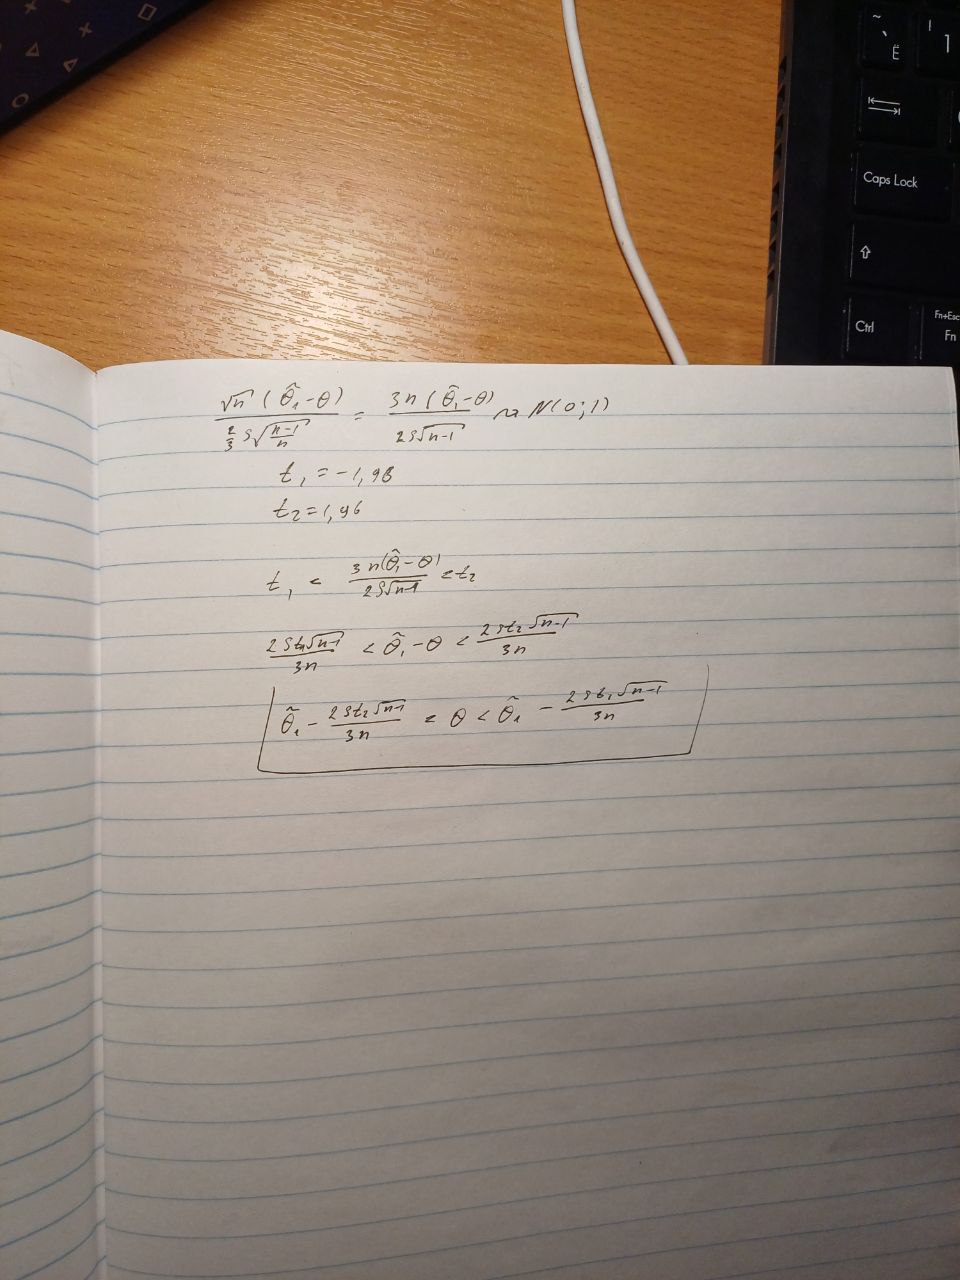 ~ ` Ё ! 1
Caps Lock
Ctrl Fn+Esc Fn
√n (θ̃₁ - θ) / (2/3 s √((n-1)/n)) = 3n (θ̃₁ - θ) / (2s√(n-1)) ~ N(0;1)
t₁ = -1,96
t₂ = 1,96
t₁ < 3n(θ̃₁ - θ) / (2s√(n-1)) < t₂
2st₁√(n-1) / 3n < θ̃₁ - θ < 2st₂√(n-1) / 3n
θ̃₁ - 2st₂√(n-1) / 3n < θ < θ̃₁ - 2st₁√(n-1) / 3n